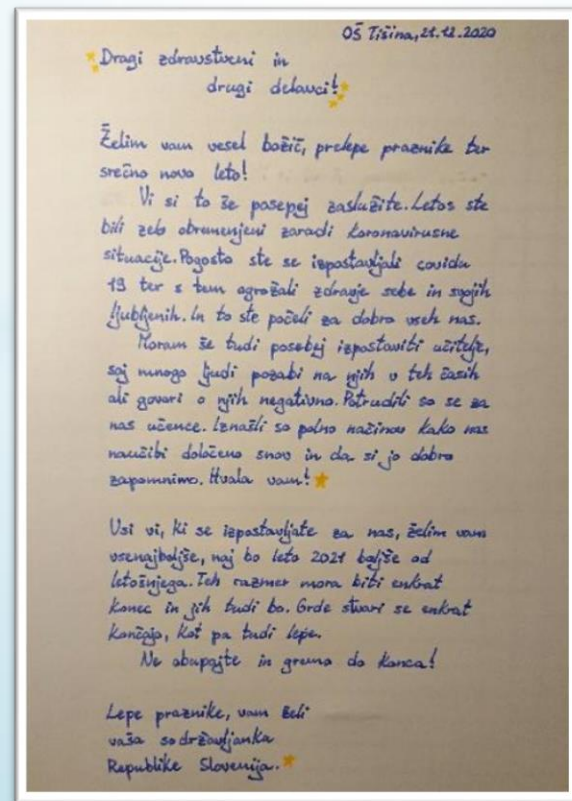 OŠ Tišina, 21.12.2020
Dragi zdravstveni in
drugi delavci!
Želim vam vesel božič, prelepe praznike ter
srečno novo leto!
Vi si to še posepej zaslužite. Letos ste
bili zelo obremenjeni zaradi koronavirusne
situacije. Pogosto ste se izpostavljali covidu
19 ter s tem ogrožali zdravje sebe in svojih
ljubljenih. In to ste počeli za dobro vseh nas.
Moram še tudi posebej izpostaviti učitelje,
saj mnogo ljudi pozabi na njih v teh časih
ali govori o njih negativno. Potrudili so se za
nas učence. Iznašli so polno načinov kako nas
naučiti določeno snov in da si jo dobro
zapomnimo. Hvala vam!
Vsi vi, ki se izpostavljate za nas, želim vam
vsenajboljše, naj bo leto 2021 boljše od
letošnjega. Teh razmer mora biti enkrat
konec in jih tudi bo. Grde stvari se enkrat
končajo, kot pa tudi lepe.
Ne obupajte in gremo do konca!
Lepe praznike, vam želi
vaša sodržavljanka
Republike Slovenija.